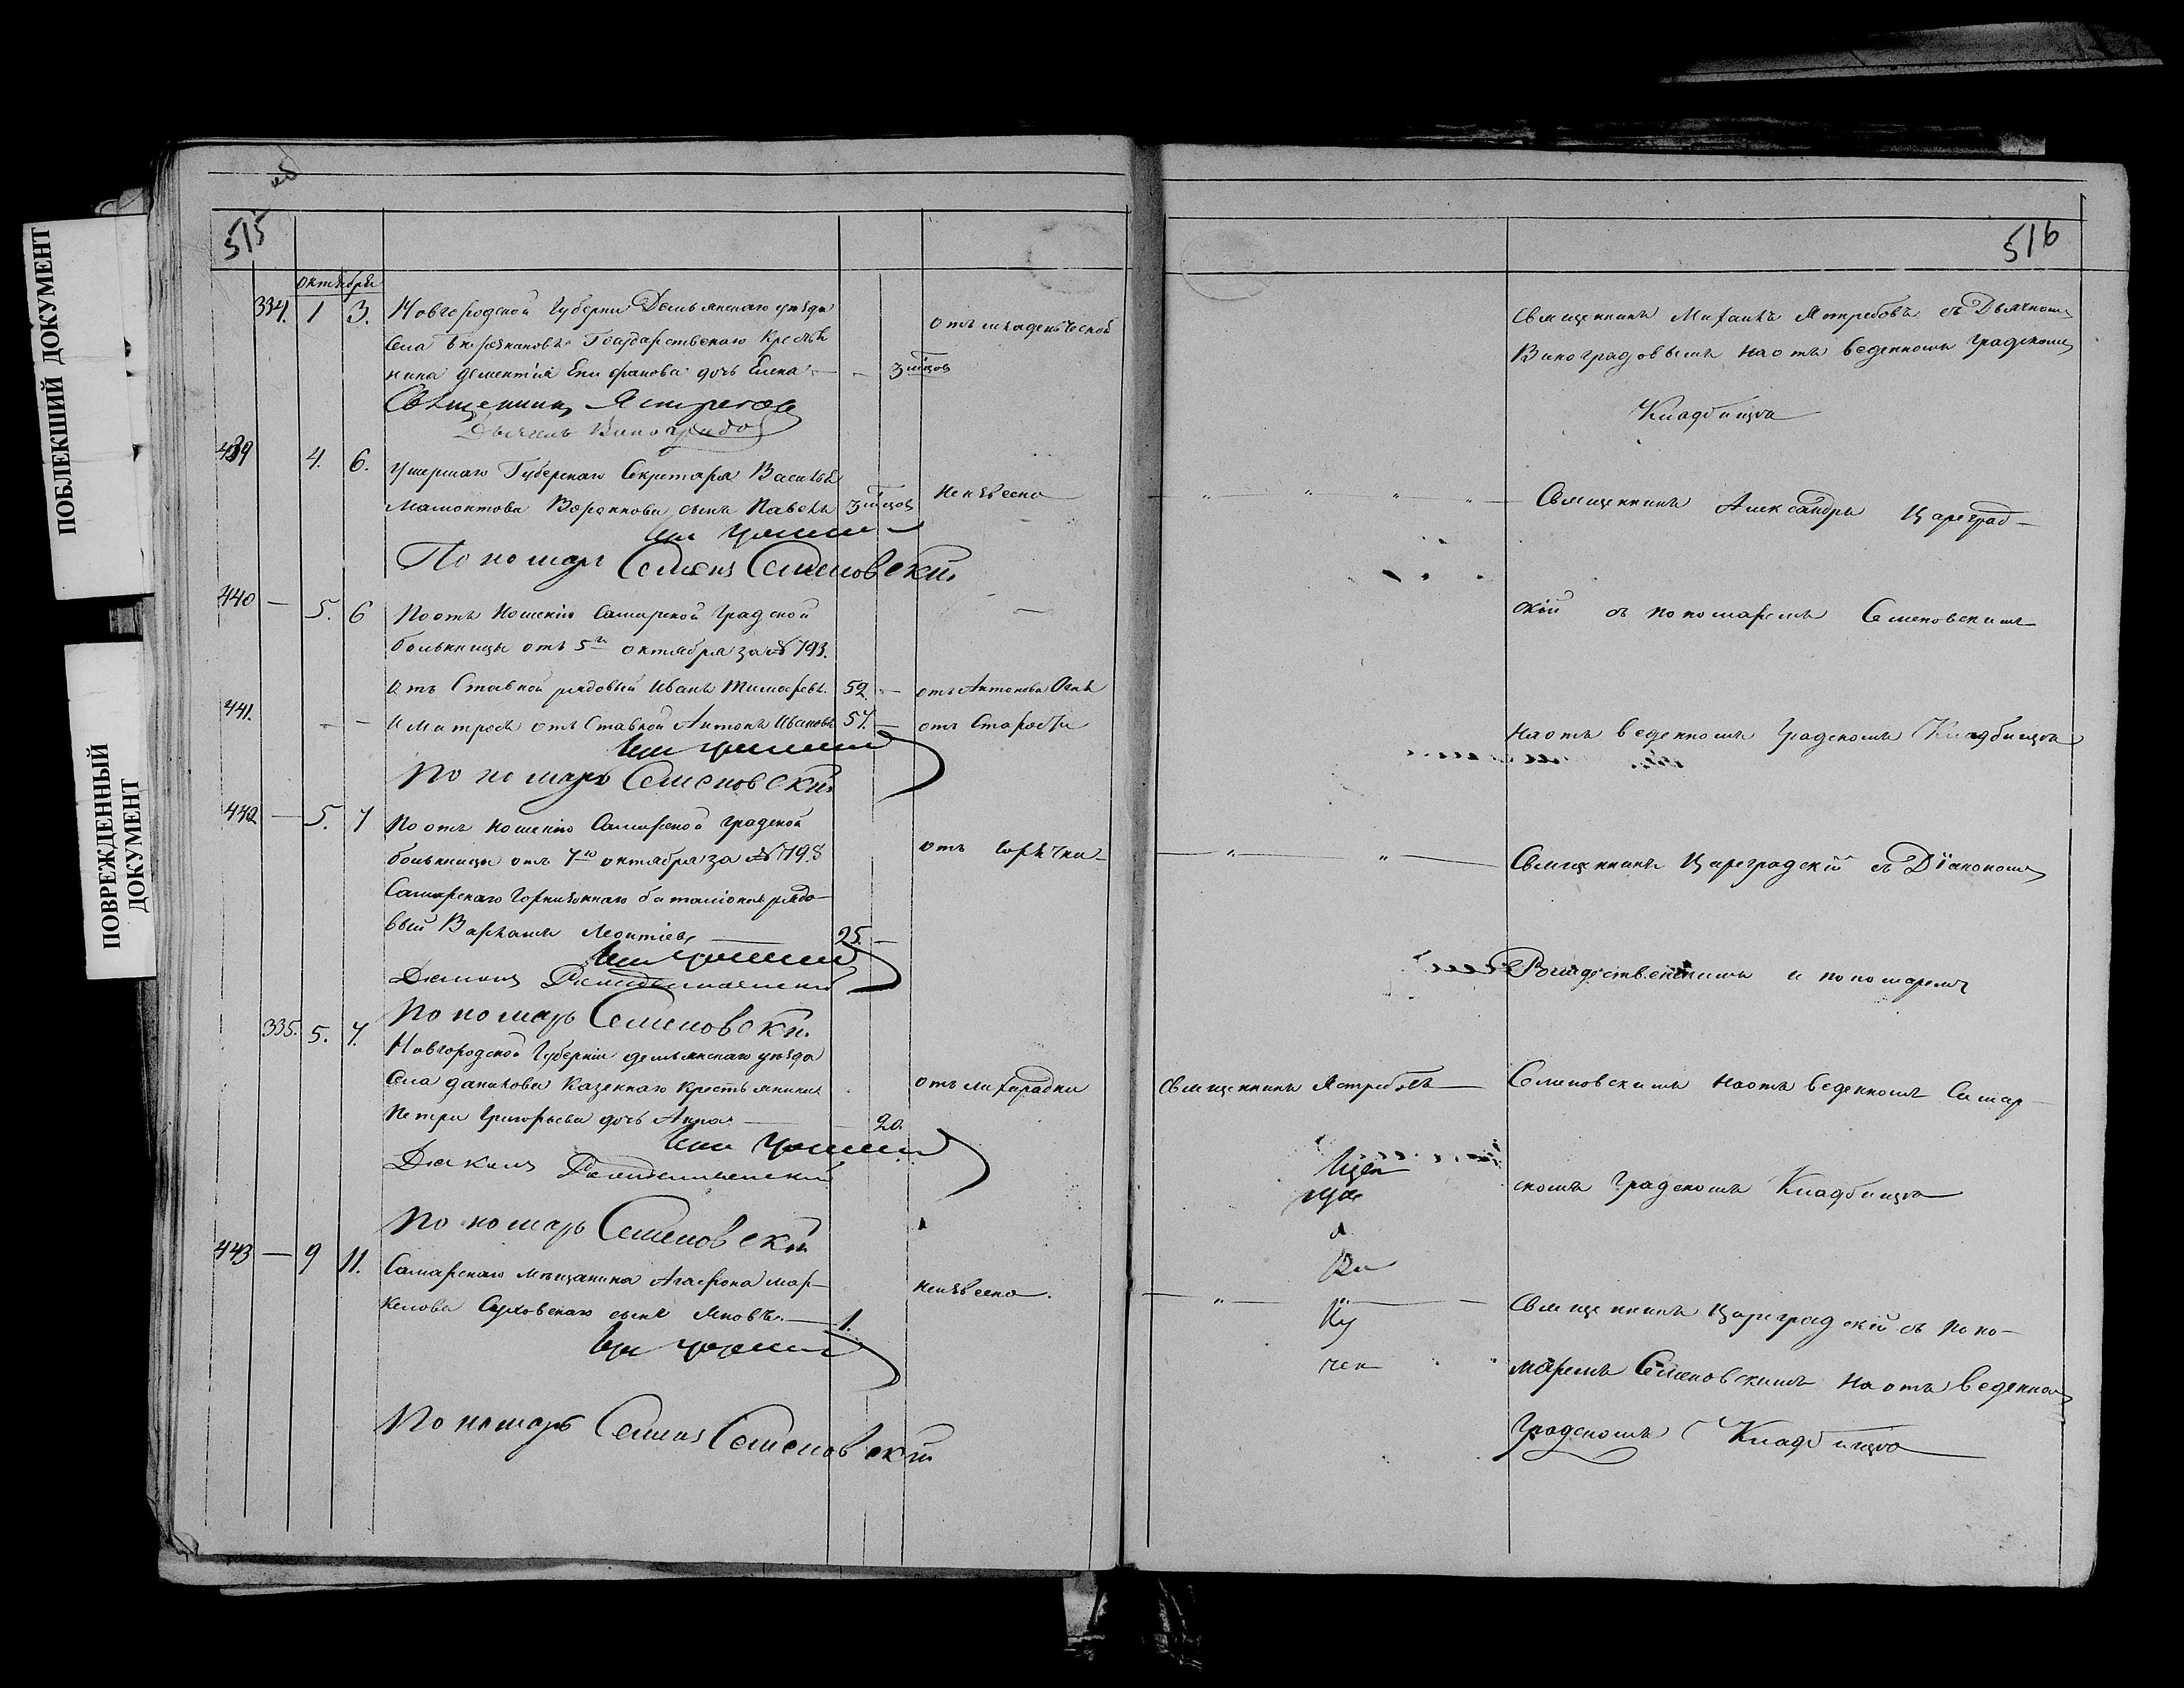 ПОБЛЕКШИЙ ДОКУМЕНТ
ПОВРЕЖДЕННЫЙ
ДОКУМЕНТ
515
октября
334. 1 3. Новгородской Губерни Демьянскаго уѣзда
Села Государственаго Крестья
нина Дементія Епифанова дочь Елена — 3 мцов
отъ младенческой
Священникъ Ястребов
Дьячекъ Виноградов
439 4. 6. Умершаго Губерскаго Секретаря Василья
Мамонтова Воронкова сынъ Павелъ 3 мцов
Неизвесно
Пономарь Семенъ Семеновскій
440 — 5. 6 По отъ ношенію Самарской Градской
больницы отъ 5го октября за № 793.
Отъ Ставной рядовый Иванъ Тимофевъ 52. — отъ Антонова Огня
441. - - И Матросъ отъ Ставной Антонъ Ивановъ 57. — отъ Старости
Пономарь Семеновскій
442 — 5. 7 По отъ ношенію Самарской градской
больницы отъ 7го октября за № 798
отъ горячки
Самарскаго Гарнизоннаго баталіона рядо-
вый Варламъ Леонтіевъ — 25. —
Діаконъ Рождественскій
Пономарь Семеновскій
335. 5. 7. Новгородской Губерніи демьянскаго уѣзда
Села данилова Казеннаго крестьянина
Петра Григорьева дочь Анна — 20.
отъ лихорадки
Діаконъ Рождественскій
Пономарь Семеновскій
443 — 9 11. Самарскаго мещанина Агафона мар-
келова Суховскаго сынъ Яковъ. — 1.
неизвесно.
Пономарь Семенъ Семеновскій
516
Священникъ Михаилъ Ястребовъ съ Дьячкомъ
Виноградовымъ на отъ веденномъ градскомъ
Кладбища
Священникъ Александръ Цареград-
скій съ пономаремъ Семеновскимъ
на отъ веденномъ градскомъ Кладбища
Священникъ Цареградскій съ Діакономъ
Рождественскимъ и пономаремъ
Священникъ Ястребовъ — Семеновскимъ на отъ веденномъ Самар-
скомъ градскомъ Кладбища
Священникъ Цареградскій съ поно-
маремъ Семеновскимъ на отъ веденномъ
градскомъ Кладбища